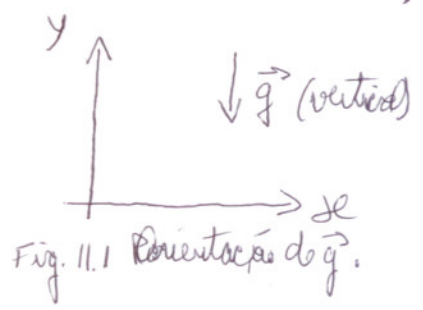 y
g⃗ (vertical)
x
Fig. 11.1 Orientação do g⃗.